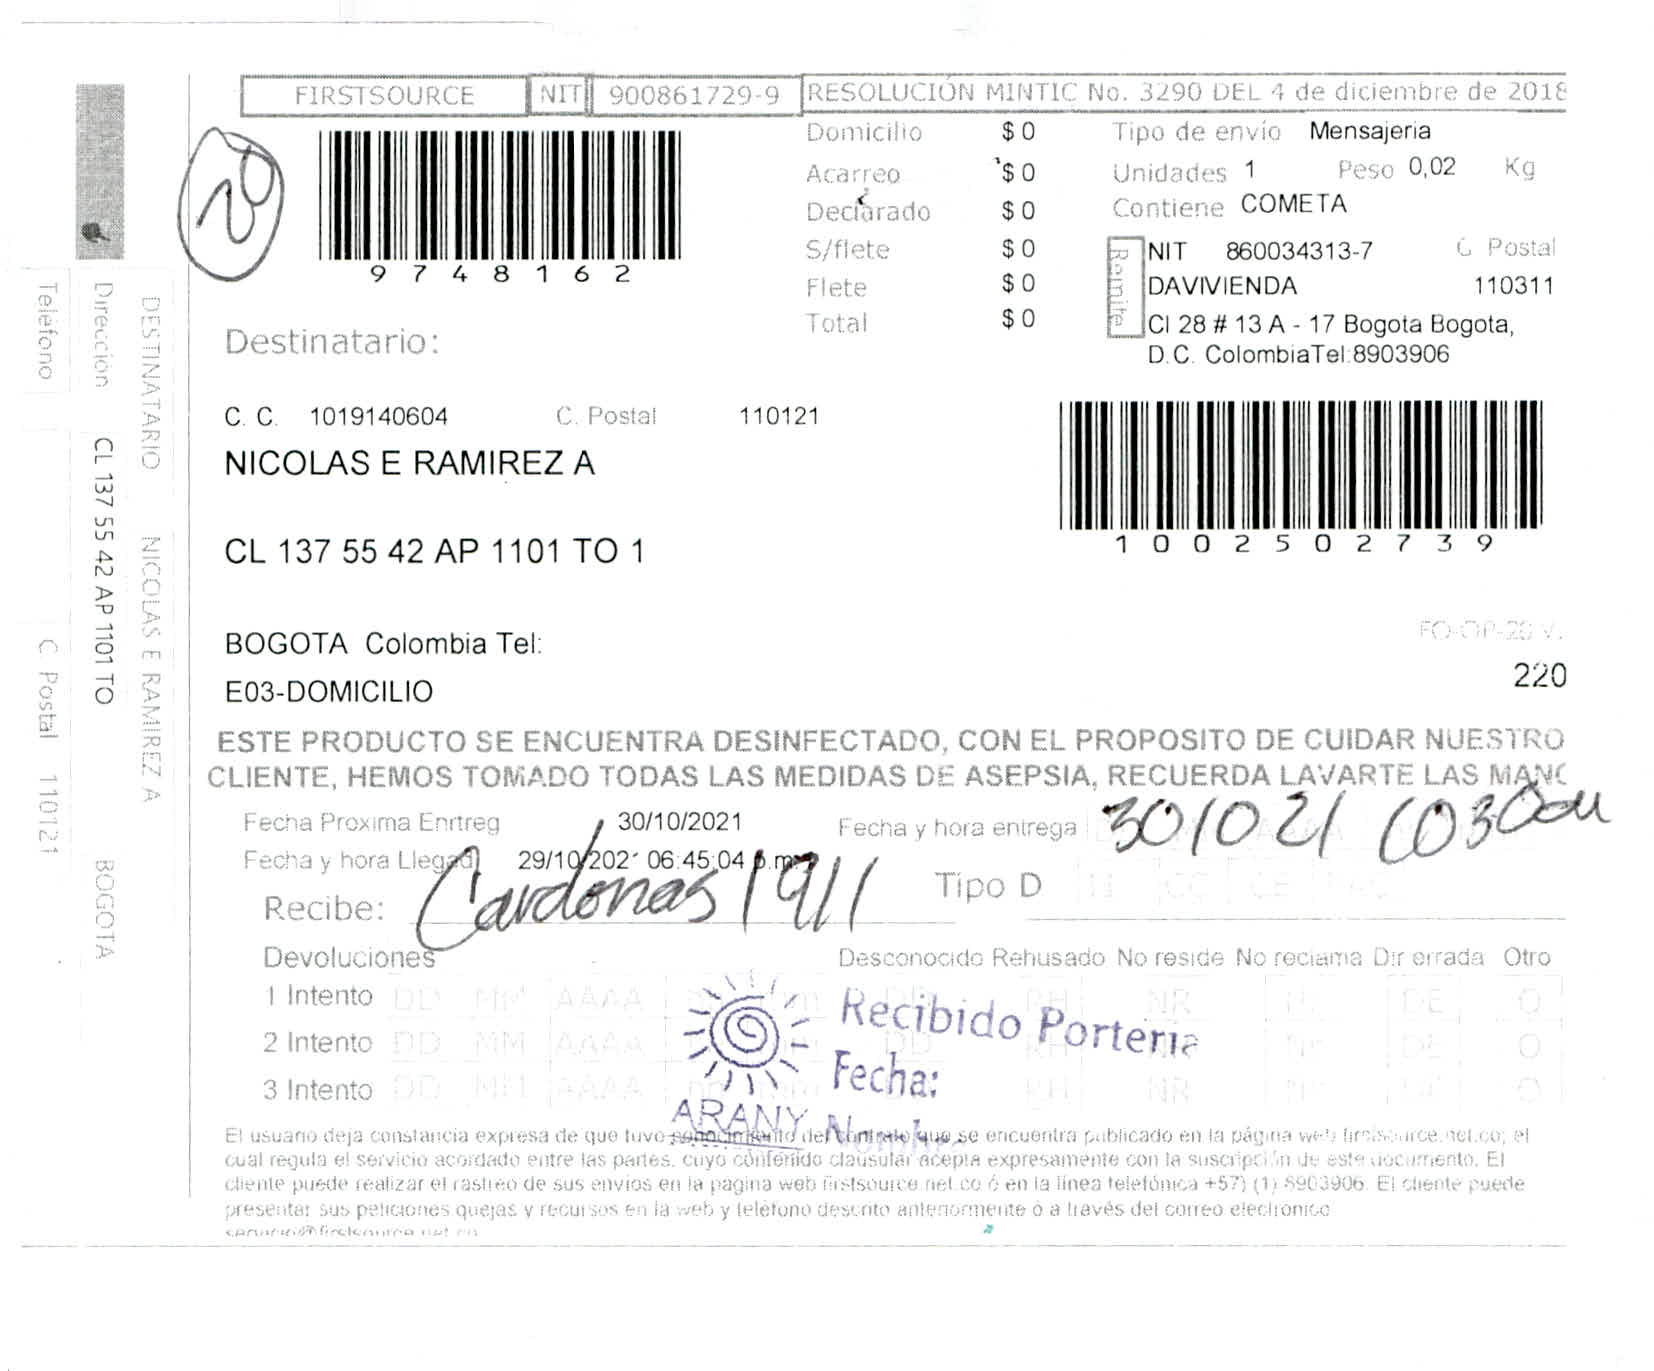 FIRSTSOURCE NIT 900861729-9 RESOLUCIÓN MINTIC No. 3290 DEL 4 de diciembre de 2018
20
9 7 4 8 1 6 2
Domicilio $ 0
Acarreo $ 0
Declarado $ 0
S/flete $ 0
Flete $ 0
Total $ 0
Tipo de envío Mensajeria
Unidades 1 Peso 0,02 Kg
Contiene COMETA
Remite
NIT 860034313-7 C Postal
DAVIVIENDA 110311
Cl 28 # 13 A - 17 Bogota Bogota,
D.C. ColombiaTel:8903906
Destinatario:
C. C. 1019140604 C. Postal 110121
NICOLAS E RAMIREZ A
CL 137 55 42 AP 1101 TO 1
1 0 0 2 5 0 2 7 3 9
BOGOTA Colombia Tel:
E03-DOMICILIO
FO-OP-20 V.
220
ESTE PRODUCTO SE ENCUENTRA DESINFECTADO, CON EL PROPOSITO DE CUIDAR NUESTRO
CLIENTE, HEMOS TOMADO TODAS LAS MEDIDAS DE ASEPSIA, RECUERDA LAVARTE LAS MANO
Fecha Proxima Enrtreg 30/10/2021
Fecha y hora entrega 301021
Fecha y hora Llegad 29/10/202 06:45:04 p.m
Tipo D 11 CC CE
Recibe: Cardonas 1911
Devoluciones Desconocido Rehusado No reside No reclama Dir errada Otro
1 Intento DD MM AAAA RH NR DE O
2 Intento DD MM AAAA DD RH DE O
3 Intento DD MM AAAA RH NR O
Recibido Porteria
Fecha:
Nombre
ARANY
El usuario deja constancia expresa de que tuvo conocimiento del contrato que se encuentra publicado en la página web firstsource.net.co; el
cual regula el servicio acordado entre las partes, cuyo contenido clausular acepta expresamente con la suscripción de este documento. El
cliente puede realizar el rastreo de sus envios en la pagina web firstsource.net.co ó en la línea telefónica +57) (1) 8903906. El cliente puede
presentar sus peticiones quejas y recursos en la web y teléfono descrito anteriormente ó a través del correo electronico
servicio@firstsource.net.co
DESTINATARIO NICOLAS E RAMIREZ A
Dirección CL 137 55 42 AP 1101 TO BOGOTA
Teléfono C Postal 110121